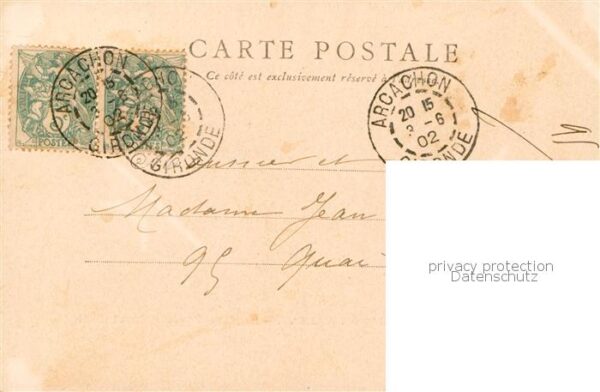 CARTE POSTALE
Ce côté est exclusivement réservé à l'adresse
ARCACHON
20 15
3 -6
02
GIRONDE
ARCACHON
GIRONDE
ARCACHON
20 15
3 -6
02
GIRONDE
POSTES
Monsieur et
Madame Jean
95 Quai
privacy protection
Datenschutz